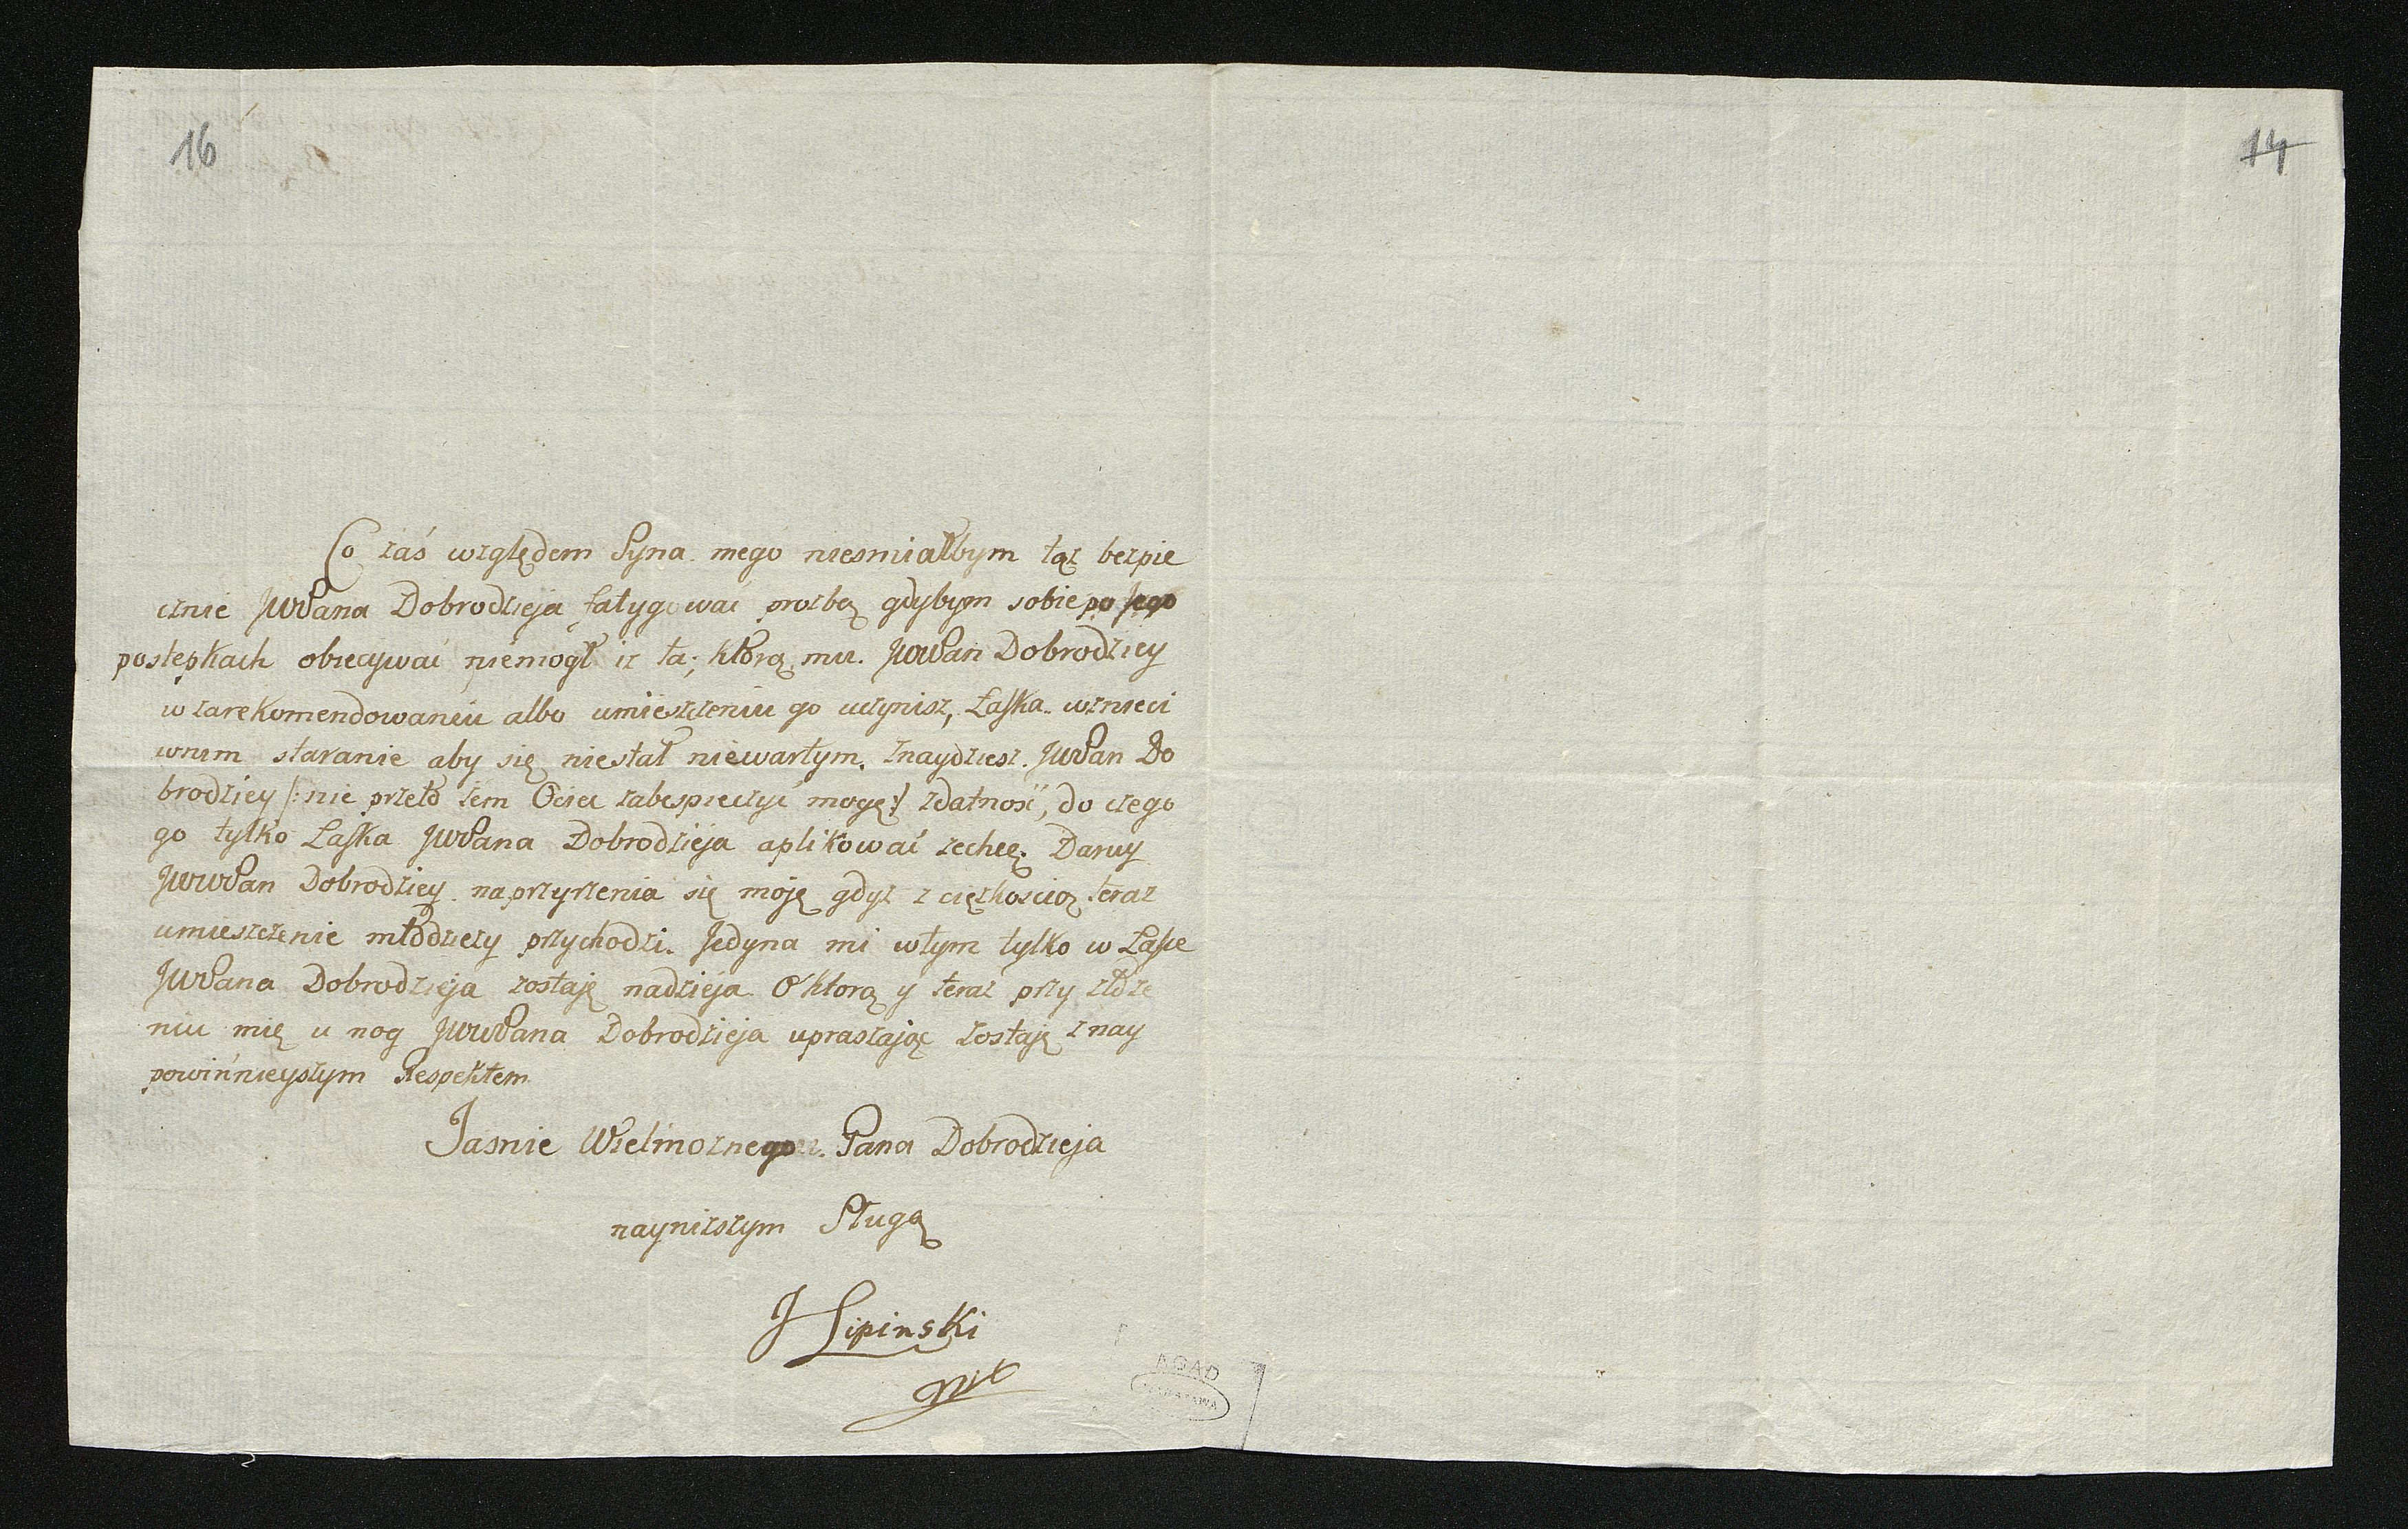 16
14
Co zaś względem Syna mego niesmiałbym tąz bezpie
cznie JWPana Dobrodzieja fatygować prozbą gdybym sobie po Jego
postępkach obiecywać niemogł iz ta; którą mu. JWPan Dobrodziey
w zarekomendowaniu albo umieszczeniu go uczynisz, Łaska wznieci
wnim staranie aby się niestał niewartym. Znaydziesz. JWPan Do
brodziey /: nie przeto zem Ociec zabespieczyć mogę :/ zdatność, do czego
go tylko Łaska JWPana Dobrodzieja aplikować zechcę. Daruy
JWWPan Dobrodziey naprzyrzenia się moję gdyz z cięzkoscią teraz
umieszczenie młodziezy przychodzi. Jedyna mi wtym tylko w Łasce
JWPana Dobrodzieja zostaję nadzieja O ktorą y teraz przy złoże
niu mię u nog JWWPana Dobrodzieja upraszając zostaję z nay
powinnieyszym Respektem
Jasnie Wielmoznego Pana Dobrodzieja
naynizszym Sługą
J Lipinski
AGAD
WARSZAWA